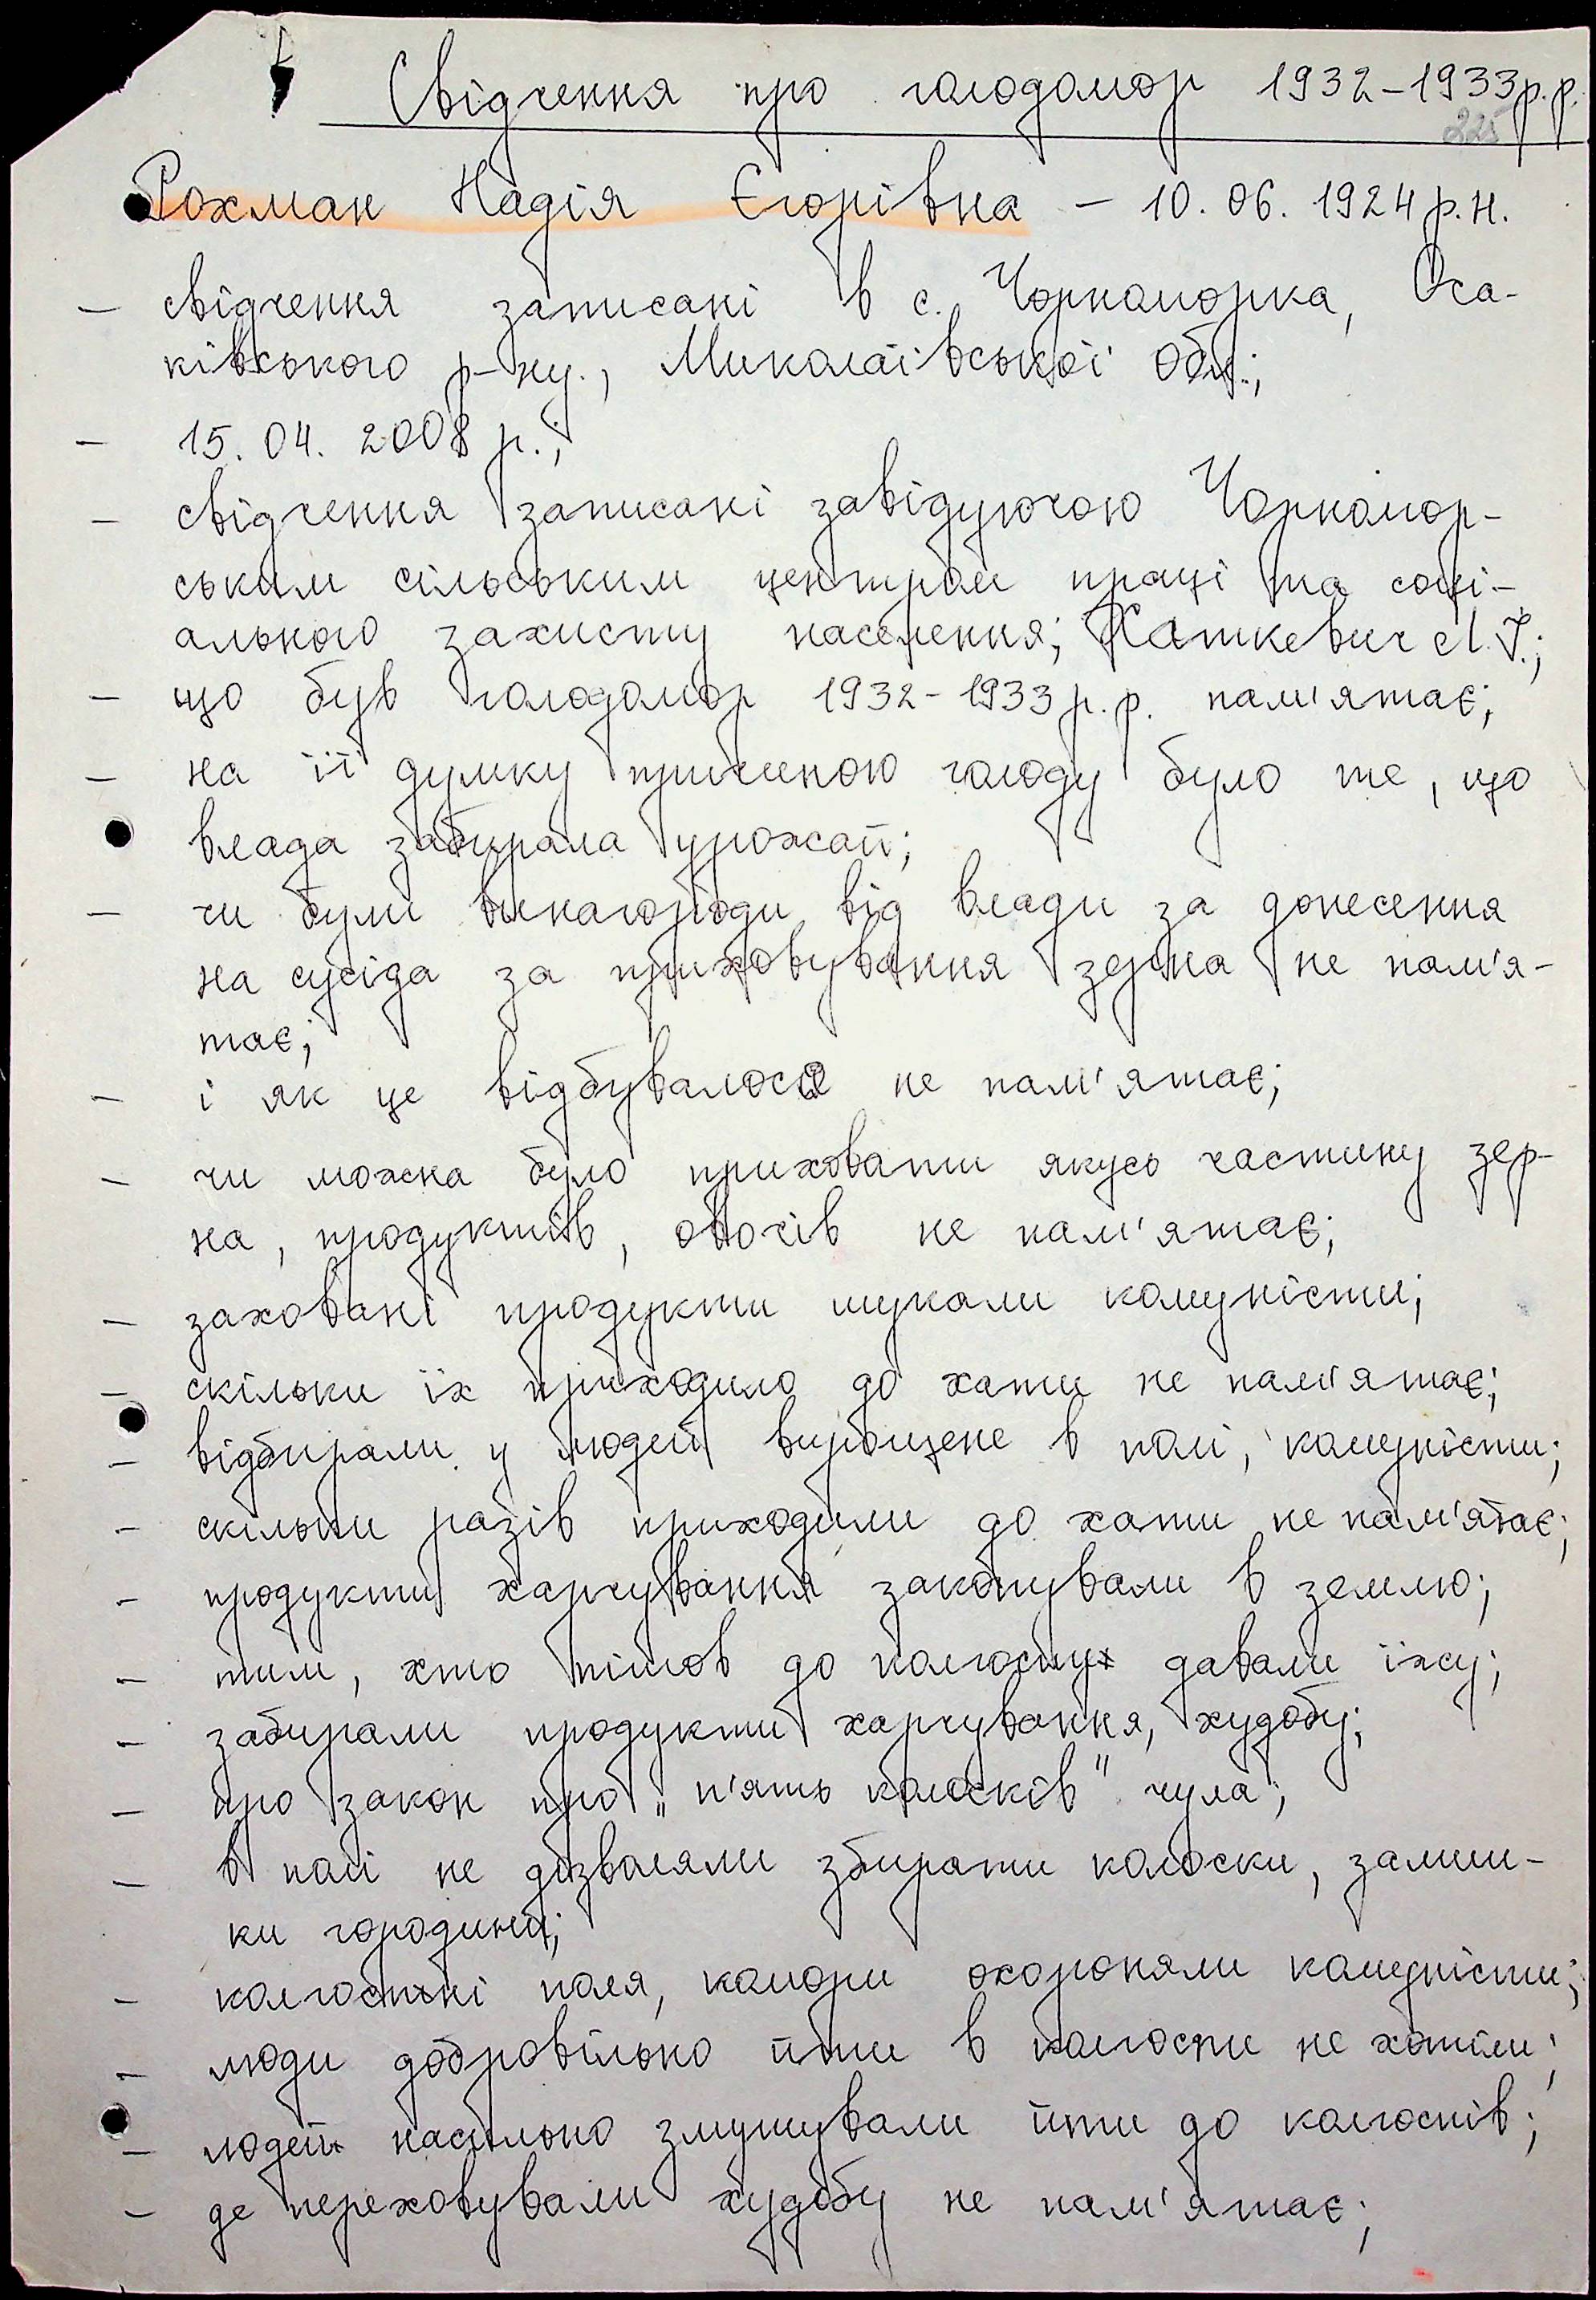 Свідчення про голодомор 1932-1933 р.р.
225
Рохман Надія Єгорівна - 10.06.1924 р.н.
- свідчення записані в с. Чорноморка, Оча-
ківського р-ну., Миколаївської обл.;
- 15.04.2008 р.;
- свідчення записані завідуючою Чорномор-
ським сільським центром праці та соці-
ального захисту населення; Хаткевич Л.І.;
- що був голодомор 1932-1933 р.р. пам'ятає;
- на її думку причиною голоду було те, що
влада забирала урожай;
- чи були винагороди від влади за донесення
на сусіда за приховування зерна не пам'я-
тає;
- і як це відбувалося не пам'ятає;
- чи можна було приховати якусь частину зер-
на, продуктів, овочів не пам'ятає;
- заховані продукти шукали комуністи;
- скільки їх приходило до хати не пам'ятає;
- відбирали у людей вирощене в полі, комуністи;
- скільки разів приходили до хати не пам'ятає;
- продукти харчування закопували в землю;
- тим, хто пішов до колгоспу давали їжу;
- забирали продукти харчування, худобу;
- про закон про „п'ять колосків" чула;
- в полі не дозволяли збирати колоски, залиш-
ки городини;
- колгоспні поля, комори охороняли комуністи;
- люди добровільно йти в колгоспи не хотіли;
- людей насильно змушували йти до колгоспів;
- де переховували худобу не пам'ятає;